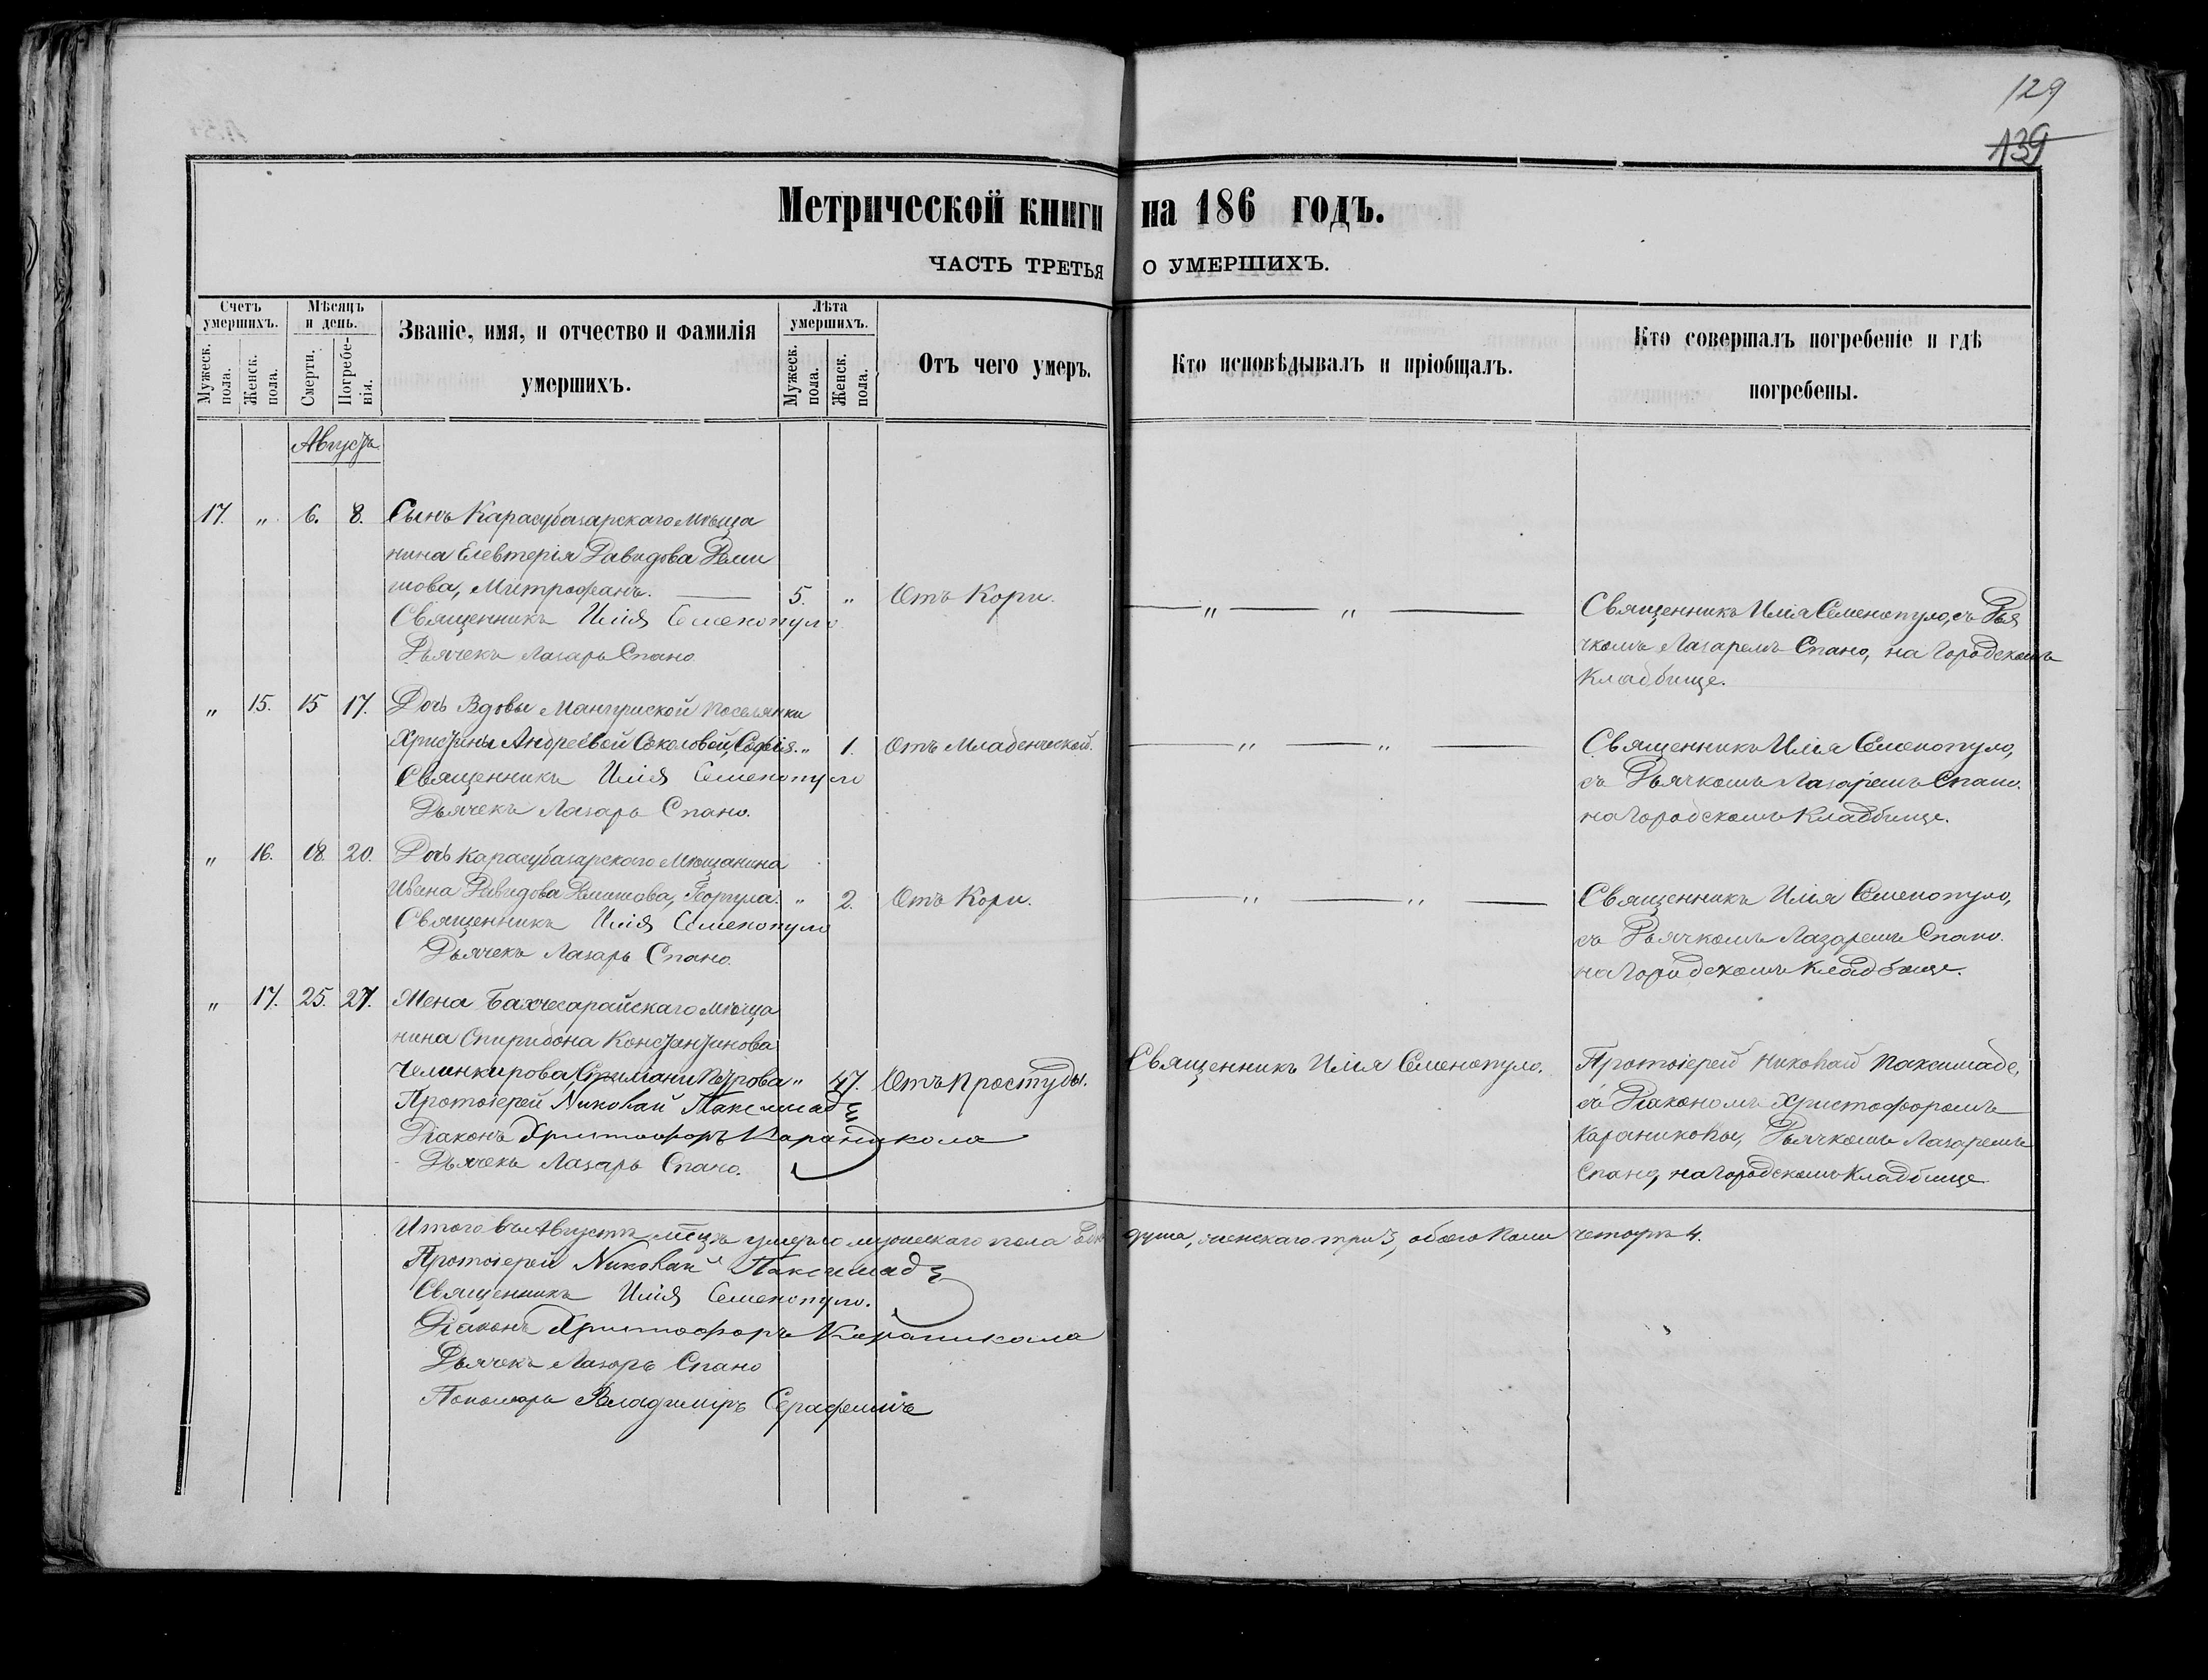 129
139
Метрической книги на 186 годъ.
ЧАСТЬ ТРЕТЬЯ О УМЕРШИХЪ.
Счетъ умершихъ.
Мужеск. пола.
Женск. пола.
Мѣсяцъ и день.
Смерти.
Погребенія.
Званіе, имя, и отчество и фамилія умершихъ.
Лѣта умершихъ.
Мужеск. пола.
Женск. пола.
Отъ чего умеръ.
Кто исповѣдывалъ и пріобщалъ.
Кто совершалъ погребеніе и гдѣ погребены.
Августъ
17. „ 6. 8. Сынъ Карасубазарскаго Мѣща
нина Елевтерія Давидова
Митрофанъ. 5. „ Отъ Кори. „ „
Священникъ Илія Семенопуло
Дьячекъ Лазарь Спано
Священникъ Илія Семенопуло, съ Дья
чкомъ Лазаремъ Спано, на Городскомъ
Кладбище.
„ 15. 15 17. Дочь Вдовы Мангушской поселянки
Христины Андреевой Соколовой, Софія. „ 1. Отъ Младенческой. „ „
Священникъ Илія Семенопуло
Дьячекъ Лазарь Спано.
Священникъ Илія Семенопуло,
съ Дьячкомъ Лазаремъ Спано.
на Городскомъ Кладбище.
„ 16. 18. 20. Дочь Карасубазарскаго Мѣщанина
Ивана Давидова „ 2. Отъ Кори. „ „
Священникъ Илія Семенопуло
Дьячекъ Лазарь Спано.
Священникъ Илія Семенопуло,
съ Дьячкомъ Лазаремъ Спано.
на Городскомъ Кладбище.
„ 17. 25. 27. Жена Бахчесарайскаго Мѣща
нина Спиридона Константинова
Челинкирова, Петрова „ 47. Отъ Простуды. Священникъ Илія Семенопуло.
Протоіерей Николай Паксимаде
Діаконъ Христофоръ Караникола
Дьячекъ Лазарь Спано.
Протоіерей Николай Паксимаде,
съ Діакономъ Христофоромъ
Караниколы, Дьячкомъ Лазаремъ
Спано, на Городскомъ Кладбище
Итого въ Августѣ мѣсцѣ умерло мужескаго пола душа, женскаго три 3, обоего Пола четыре 4.
Протоіерей Николай Паксимаде
Священникъ Илія Семенопуло.
Діаконъ Христофоръ Караникола
Дьячекъ Лазарь Спано
Пономарь Владиміръ Серафимовъ